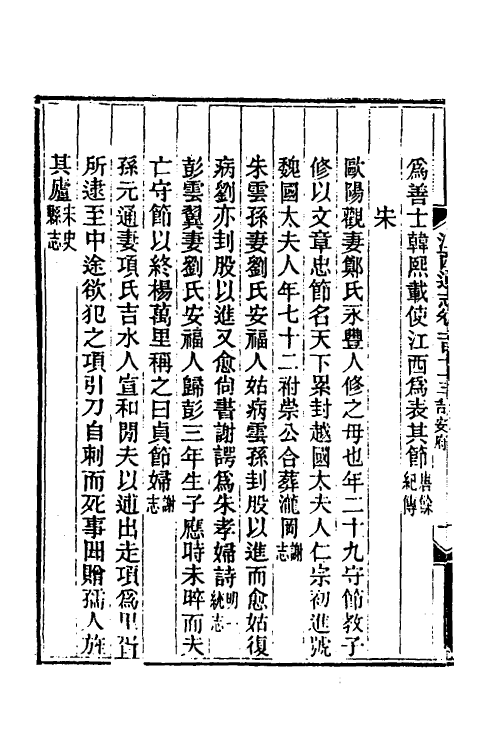 江西通志卷一百六十三吉安府
爲善士韓熙載使江西爲表其節唐餘紀傳
宋
歐陽觀妻鄭氏永豐人修之母也年二十九守節教子
修以文章忠節名天下累封越國太夫人仁宗初進號
魏國太夫人年七十二祔崇公合葬瀧岡謝志
朱雲孫妻劉氏安福人姑病雲孫刲股以進而愈姑復
病劉亦刲股以進又愈尙書謝諤爲朱孝婦詩明一統志
彭雲翼妻劉氏安福人歸彭三年生子應時未晬而夫
亡守節以終楊萬里稱之曰貞節婦謝志
孫元通妻項氏吉水人宣和閒夫以逋出走項爲里胥
所逮至中途欲犯之項引刀自刺而死事聞贈孺人旌
其廬宋史縣志